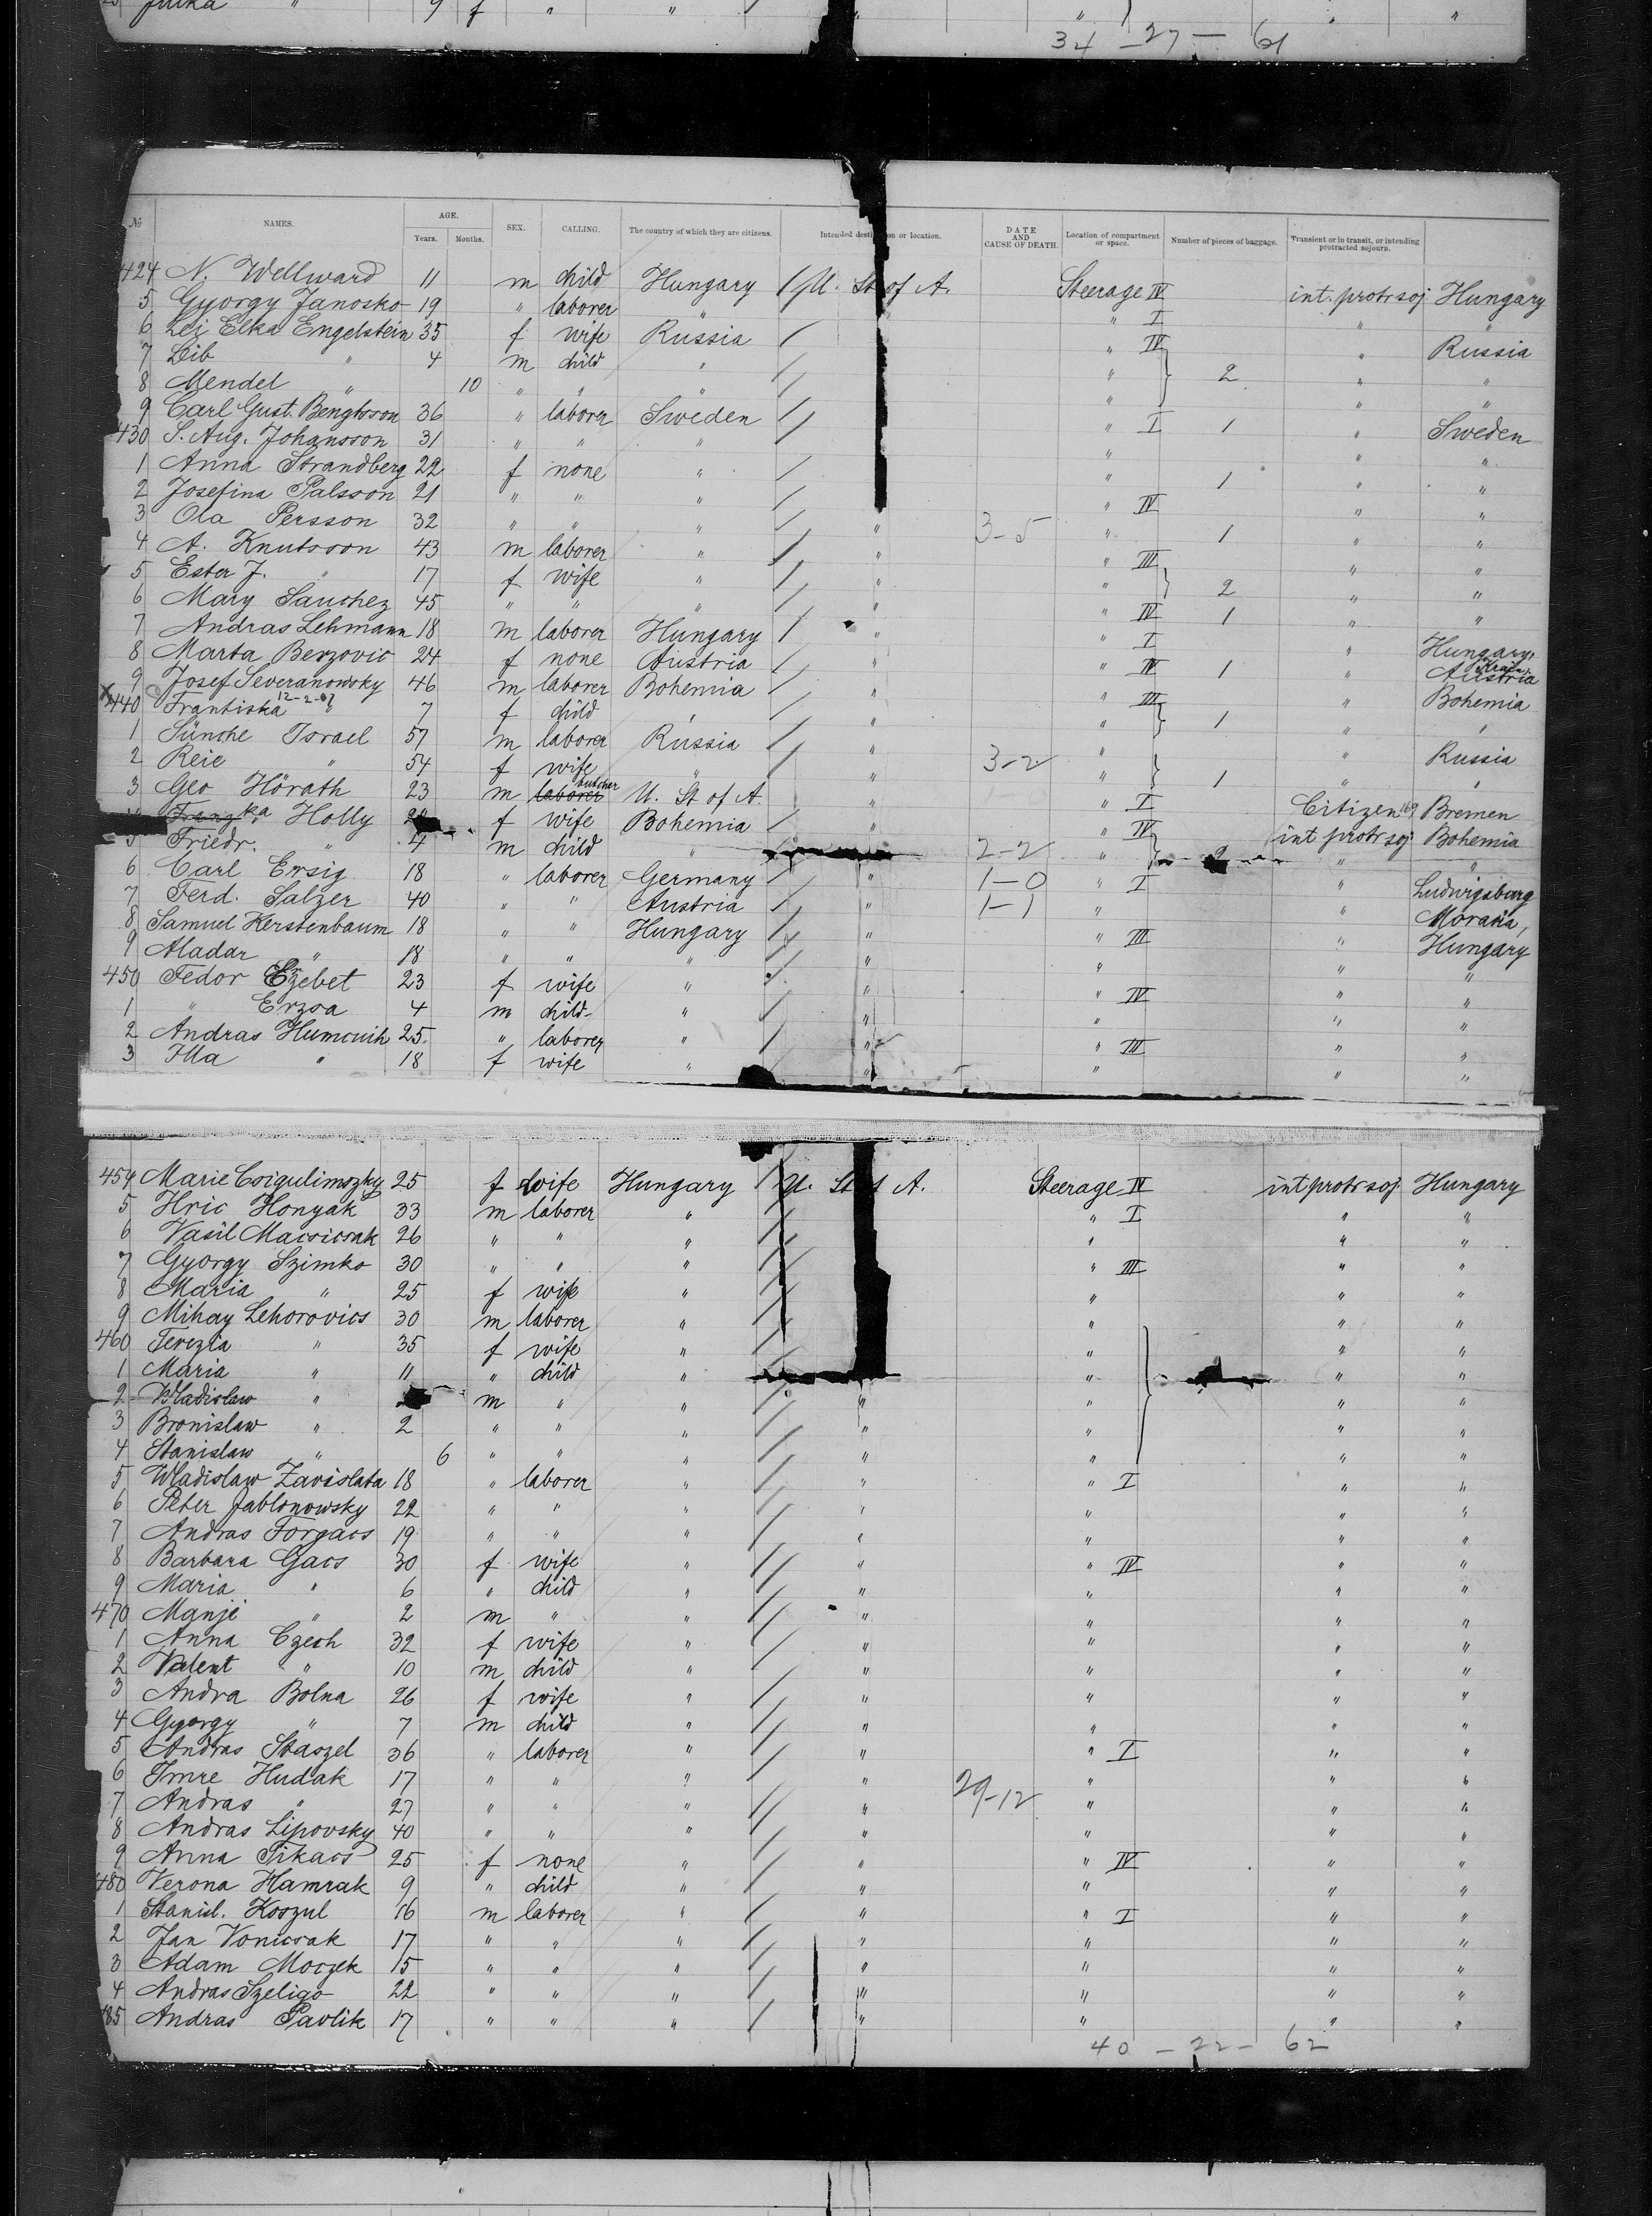 Julka " 9 f " " " " "
34 - 27 - 61
№ NAMES. AGE. Years. Months. SEX. CALLING. The country of which they are citizens. Intended destination or location. DATE AND CAUSE OF DEATH. Location of compartment or space. Number of pieces of baggage. Transient or in transit, or intending protracted sojourn.
424 N. Wellward 11 m child Hungary U. St of A. Steerage IV int. protr soj Hungary
5 Gyorgy Janosko 19 " laborer " " I " "
6 Lej Elka Engelstein 35 f wife Russia " IV " Russia
7 Leib " 4 m child " " 2 " "
8 Mendel " 10 " " " " " "
9 Carl Gust. Bengtsson 36 " laborer Sweden " I 1 " Sweden
430 S. Aug. Johansson 31 " " " " " "
1 Anna Strandberg 22 f none " " 1 " "
2 Josefina Palsson 21 " " " " IV " "
3 Ola Persson 32 " " " " 3-5 " 1 " "
4 A. Knutsson 43 m laborer " " " III " "
5 Ester J. " 17 f wife " " " 2 " "
6 Mary Sanchez 45 " " " " " IV 1 " "
7 Andras Lehmann 18 m laborer Hungary " " I " Hungary
8 Marta Berzovic 24 f none Austria " " IV 1 " Austria
9 Josef Severanowsky 46 m laborer Bohemia " " III " Bohemia
440 Frantiska " 12-2-07 7 f child " " " 1 " "
1 Sünche Israel 57 m laborer Russia " " " Russia
2 Reie " 54 f wife " " 3-2 " 1 " "
3 Geo Hörath 23 m laborer butcher U. St of A. " " I Citizen 169 Bremen
Franzka Holly f wife Bohemia " " IV int protr soj Bohemia
5 Friedr. " 4 m child " 2-2 " " "
6 Carl Ersig 18 " laborer Germany " 1-0 " I " Ludwigsburg
7 Ferd. Salzer 40 " " Austria " 1-1 " " Moravia,
8 Samuel Kerstenbaum 18 " " Hungary " " III " Hungary
9 Aladar " 18 " " " " " " "
450 Fedor Ezebet 23 f wife " " " IV " "
1 " Erzsa 4 m child " " " " "
2 Andras Humcuih 25 " laborer " " " III " "
3 Illa " 18 f wife " " " " "
454 Marie Csigulimszky 25 f wife Hungary U. St of A. Steerage IV int protr soj Hungary
5 Hric Honyak 33 m laborer " " I " "
6 Vasil Macsicsak 26 " " " " " "
7 Gyorgy Szimko 30 " " " " III " "
8 Maria " 25 f wife " " " "
9 Mihay Lehorovics 30 m laborer " " " "
460 Terezia " 35 f wife " " " "
1 Maria " 11 " child " " " "
2 Wladislaw " m " " " " " "
3 Bronislaw " 2 " " " " " " "
4 Stanislaw " 6 " " " " " " "
5 Wladislaw Zavislata 18 " laborer " " " I " "
6 Peter Jablonowsky 22 " " " " " " "
7 Andras Forgacs 19 " " " " " " "
8 Barbara Gacs 30 f wife " " " IV " "
9 Maria " 6 " child " " " " "
470 Manje " 2 m " " " " " "
1 Anna Czech 32 f wife " " " " "
2 Valent " 10 m child " " " " "
3 Andra Bolna 26 f wife " " " " "
4 Gyorgy " 7 m child " " " " "
5 Andras Staszel 36 " laborer " " " I " "
6 Imre Hudak 17 " " " " " " "
7 Andras " 27 " " " " 29-12 " " "
8 Andras Lipovsky 40 " " " " " " "
9 Anna Tikacs 25 f none " " " IV " "
480 Verona Hamrak 9 " child " " " " "
1 Stanisl. Koszul 16 m laborer " " " I " "
2 Jan Vonicsak 17 " " " " " " "
3 Adam Moczek 15 " " " " " " "
4 Andras Szeligo 22 " " " " " " "
485 Andras Pavlik 17 " " " " " " "
40 - 22 - 62